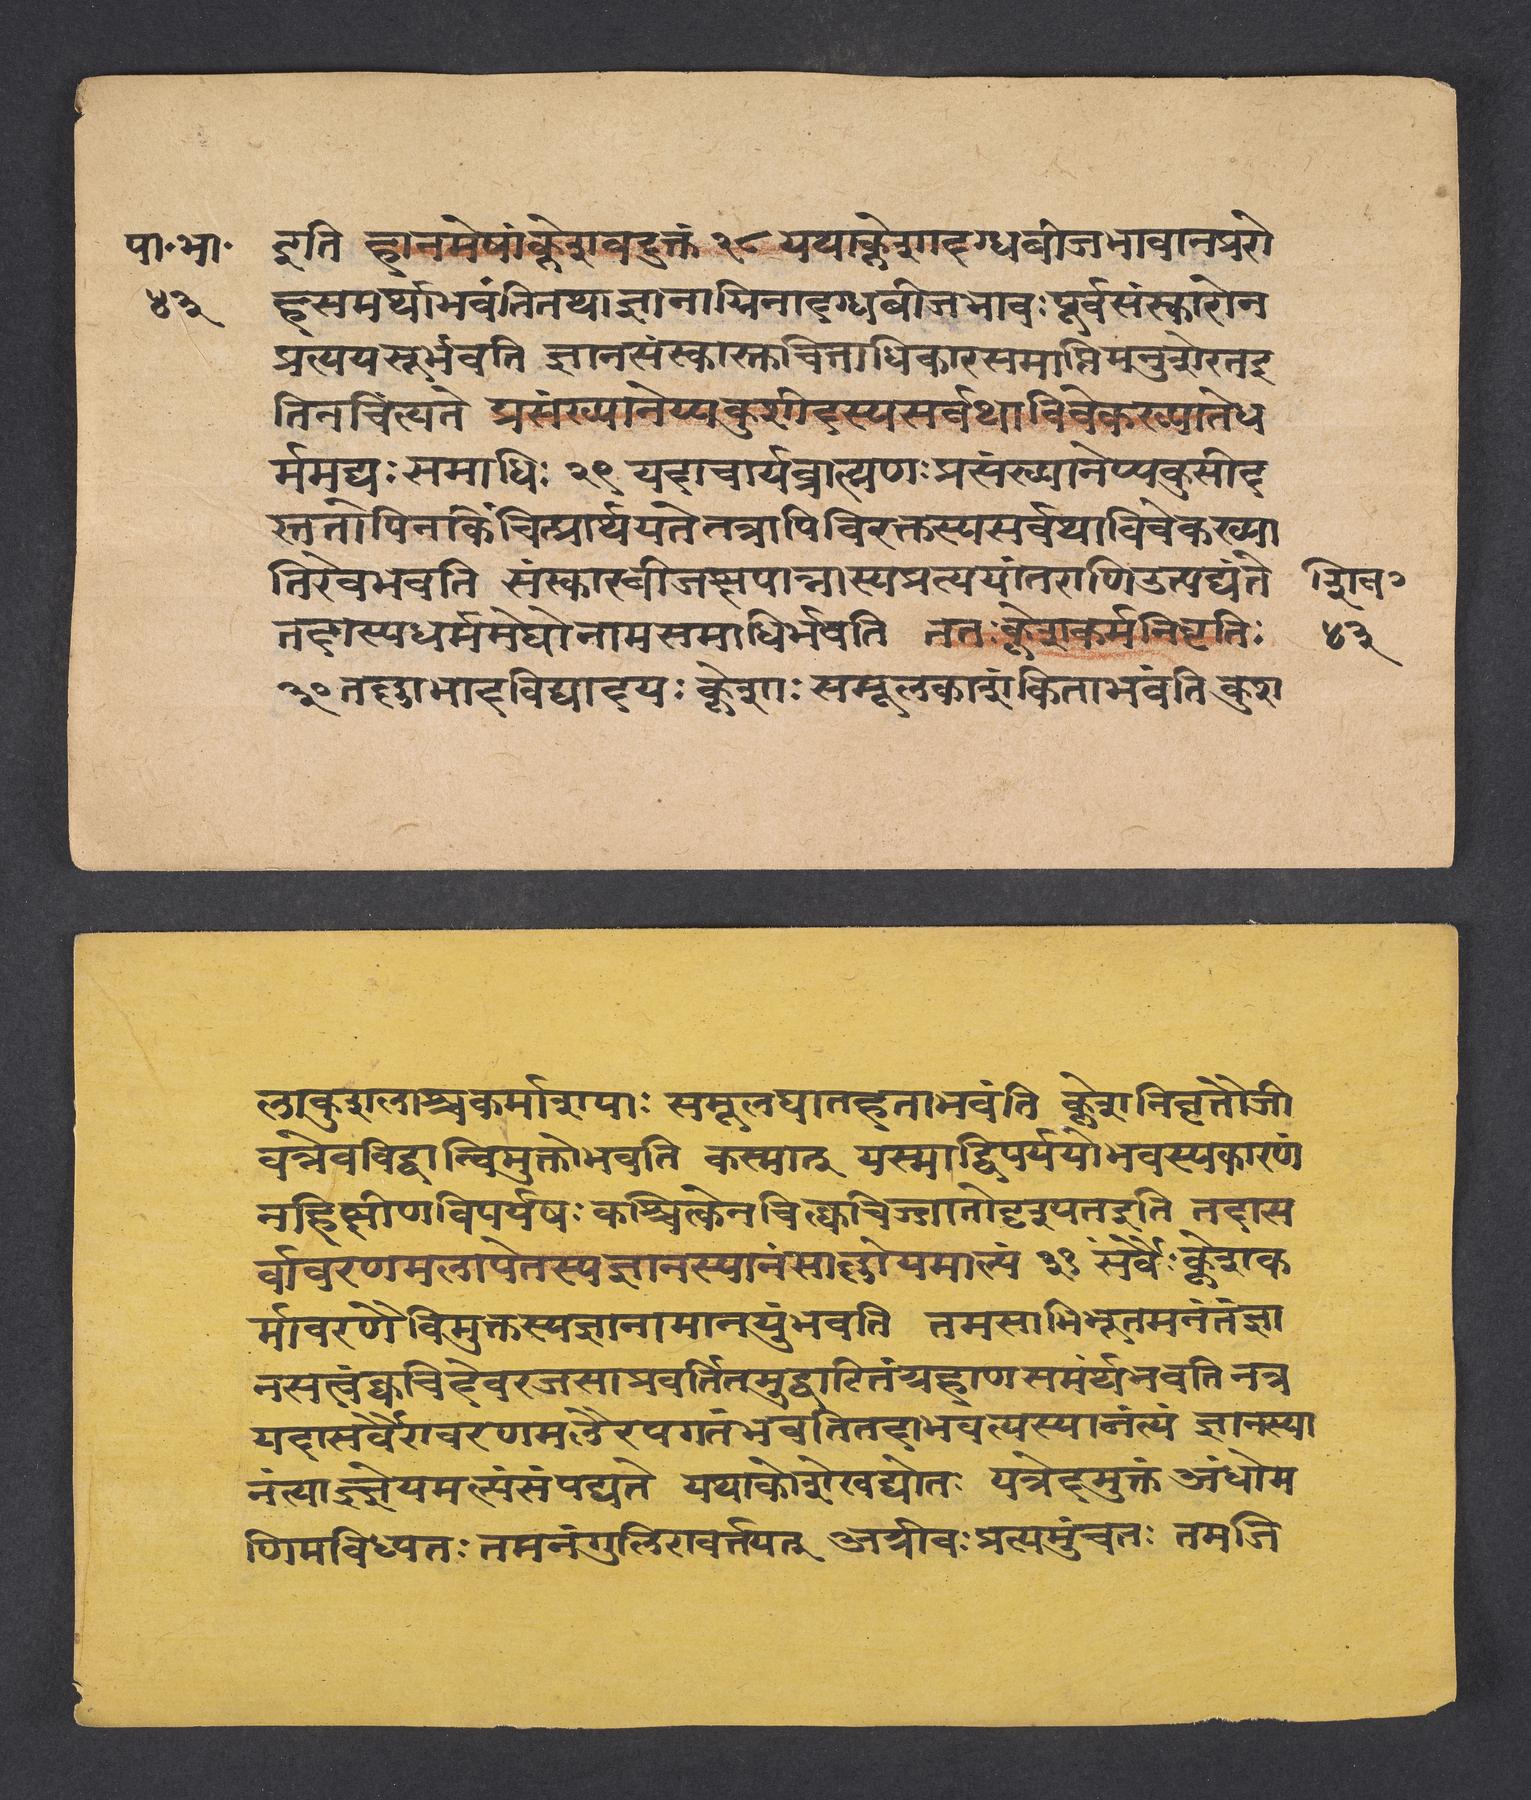 पा॰भा॰ इति हानमेषांक्लेशवदुक्तं २८ यथाक्लेशादग्धबीजभावानप्ररो
४३ हसमर्थाभवंतितथाज्ञानाग्निनादग्धबीजभावः पूर्वसंस्कारोन
प्रत्ययसूर्भवति ज्ञानसंस्कारस्तुचित्ताधिकारसमाप्तिमनुशेरतइ
तिनचिंत्यते प्रसंख्यानेप्यकुशीदस्यसर्वथाविवेकख्यातेध
र्ममेघः समाधिः २९ यदाचार्यब्राह्मणः प्रसंख्यानेप्यकुसीद
स्ततोपिनकिंचित्प्रार्थयते तत्रापिविरक्तस्यसर्वथाविवेकख्या
तिरेवभवति संस्कारबीजक्षयान्नास्यप्रत्ययांतराणिउत्पद्यंते शिव॰
तदास्यधर्ममेघोनामसमाधिर्भवति ततः क्लेशकर्मनिवृतिः ४३
३० तल्लाभादविद्यादयः क्लेशाः समूलकाशंकिताभवंति कुश
लाकुशलाश्चकर्माशयाः समूलघातहताभवंति क्लेशनिवृत्तौजी
वन्नेवविद्वान्विमुक्तोभवति कस्मात् यस्माद्विपर्ययोभवस्यकारणं
नहिक्षीणविपर्ययः कश्चित्केनचित्क्वचिज्जातोदृश्यतइति तदास
र्वावरणमलापेतस्यज्ञानस्यानंत्याज्ञेयमाल्पं ३१ सर्वैः क्लेशक
र्मावरणैविमुक्तस्यज्ञानामानत्युंभवति तमसाभिभूतमनंतंज्ञा
नसत्वंक्वचिदेवरजसाप्रवर्तितमुद्घाटितंग्रहाणसमर्थंभवति तत्र
यदासर्वैरावरणमलैरपगतंभवतितदाभवत्यस्यानंत्यं ज्ञानस्या
नंत्याज्ज्ञेयमल्पंसंपद्यते यथाकाशेखद्योतः यत्रेदमुक्तं अंधोम
णिमविध्यतः तमनंगुलिरावर्तयत् अग्रीवः प्रत्यमुंचतः तमजि